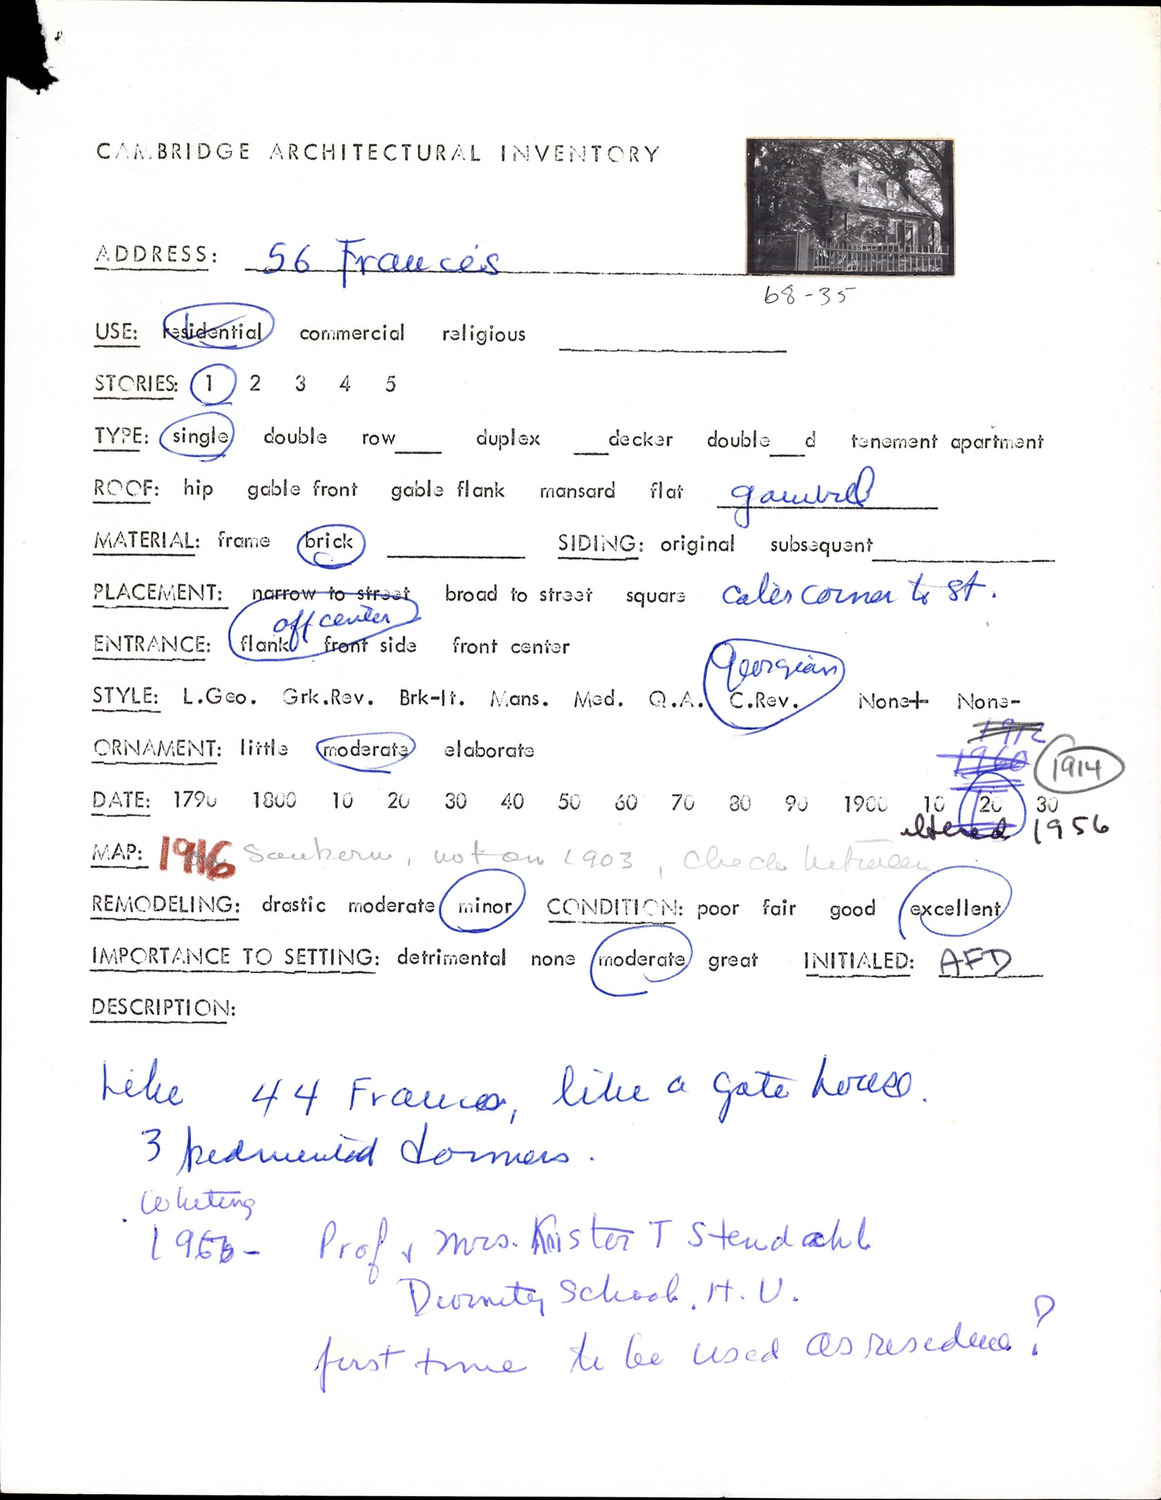 CAMBRIDGE ARCHITECTURAL INVENTORY
ADDRESS: 56 Francis
68-35
USE: residential commercial religious
STORIES: 1 2 3 4 5
TYPE: single double row___ duplex ___decker double___d tenement apartment
ROOF: hip gable front gable flank mansard flat gambrel
MATERIAL: frame brick ______ SIDING: original subsequent______
PLACEMENT: narrow to street broad to street square cater corner to st.
off center
ENTRANCE: flank front side front center
Georgian
STYLE: L.Geo. Grk.Rev. Brk-It. Mans. Med. Q.A. C.Rev. None+ None-
1912
ORNAMENT: little moderate elaborate 1960 1914
DATE: 1790 1800 10 20 30 40 50 60 70 80 90 1900 10 20 30
altered 1956
MAP: 1916 Sanborn, not on 1903, check between
REMODELING: drastic moderate minor CONDITION: poor fair good excellent
IMPORTANCE TO SETTING: detrimental none moderate great INITIALED: AFD
DESCRIPTION:
Like 44 Francis, like a gate house.
3 pedimented dormers.
Whiting
1956- Prof & Mrs. Krister T Stendahl
Divinity School, H.U.
first time to be used as residence?